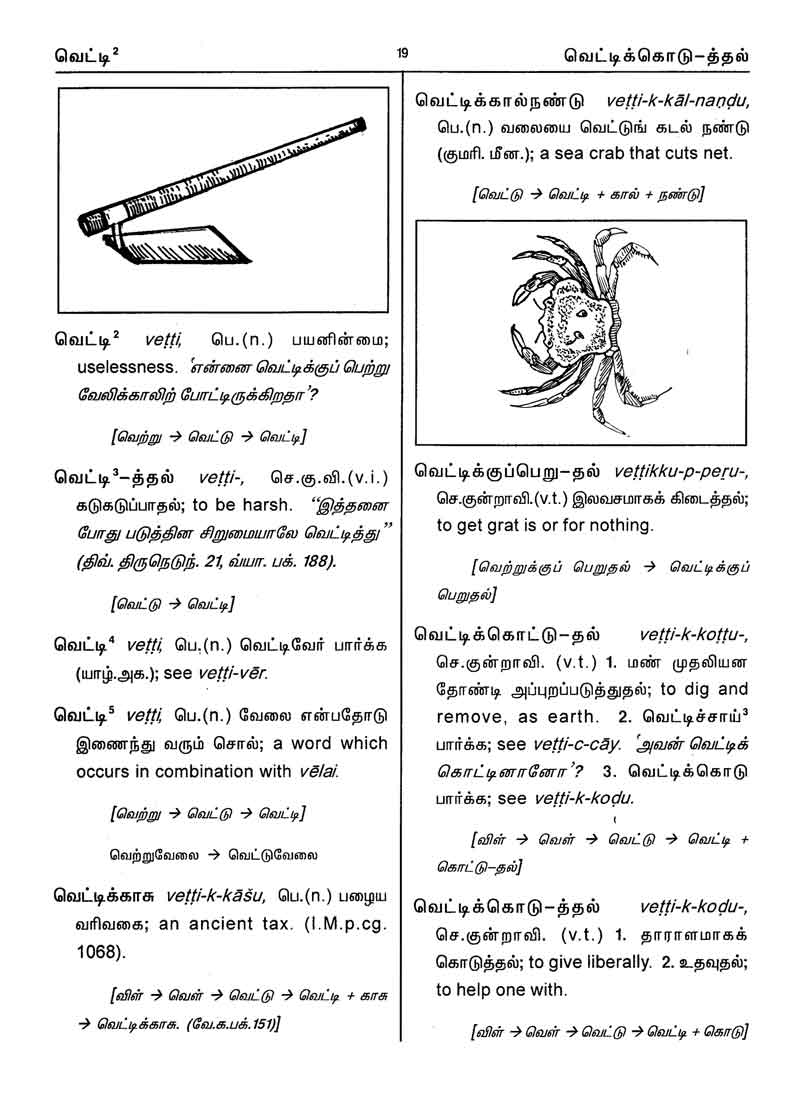 வெட்டி²
19
வெட்டிக்கொடு-த்தல்
வெட்டி² veṭṭi, பெ.(n.) பயனின்மை;
uselessness. 'என்னை வெட்டிக்குப் பெற்று
வேலிக்காலிற் போட்டிருக்கிறதா'?
[வெற்று → வெட்டு → வெட்டி]
வெட்டி³-த்தல் veṭṭi-, செ.கு.வி.(v.i.)
கடுகடுப்பாதல்; to be harsh. “இத்தனை
போது படுத்தின சிறுமையாலே வெட்டித்து”
(திவ். திருநெடுந். 21, வ்யா. பக். 188).
[வெட்டு → வெட்டி]
வெட்டி⁴ veṭṭi, பெ.(n.) வெட்டிவேர் பார்க்க
(யாழ்.அக.); see veṭṭi-vēr.
வெட்டி⁵ veṭṭi, பெ.(n.) வேலை என்பதோடு
இணைந்து வரும் சொல்; a word which
occurs in combination with vēlai.
[வெற்று → வெட்டு → வெட்டி]
வெற்றுவேலை → வெட்டுவேலை
வெட்டிக்காசு veṭṭi-k-kāšu, பெ.(n.) பழைய
வரிவகை; an ancient tax. (I.M.p.cg.
1068).
[விள் → வெள் → வெட்டு → வெட்டி + காசு
→ வெட்டிக்காசு. (வே.க.பக்.151)]
வெட்டிக்கால்நண்டு veṭṭi-k-kāl-naṇḍu,
பெ.(n.) வலையை வெட்டுங் கடல் நண்டு
(குமரி. மீன.); a sea crab that cuts net.
[வெட்டு → வெட்டி + கால் + நண்டு]
வெட்டிக்குப்பெறு-தல் veṭṭikku-p-peṟu-,
செ.குன்றாவி.(v.t.) இலவசமாகக் கிடைத்தல்;
to get grat is or for nothing.
[வெற்றுக்குப் பெறுதல் → வெட்டிக்குப்
பெறுதல்]
வெட்டிக்கொட்டு-தல் veṭṭi-k-koṭṭu-,
செ.குன்றாவி. (v.t.) 1. மண் முதலியன
தோண்டி அப்புறப்படுத்துதல்; to dig and
remove, as earth. 2. வெட்டிச்சாய்³
பார்க்க; see veṭṭi-c-cāy. 'அவன் வெட்டிக்
கொட்டினானோ'? 3. வெட்டிக்கொடு
பார்க்க; see veṭṭi-k-koḍu.
[விள் → வெள் → வெட்டு → வெட்டி +
கொட்டு-தல்]
வெட்டிக்கொடு-த்தல் veṭṭi-k-koḍu-,
செ.குன்றாவி. (v.t.) 1. தாராளமாகக்
கொடுத்தல்; to give liberally. 2. உதவுதல்;
to help one with.
[விள் → வெள் → வெட்டு → வெட்டி + கொடு]